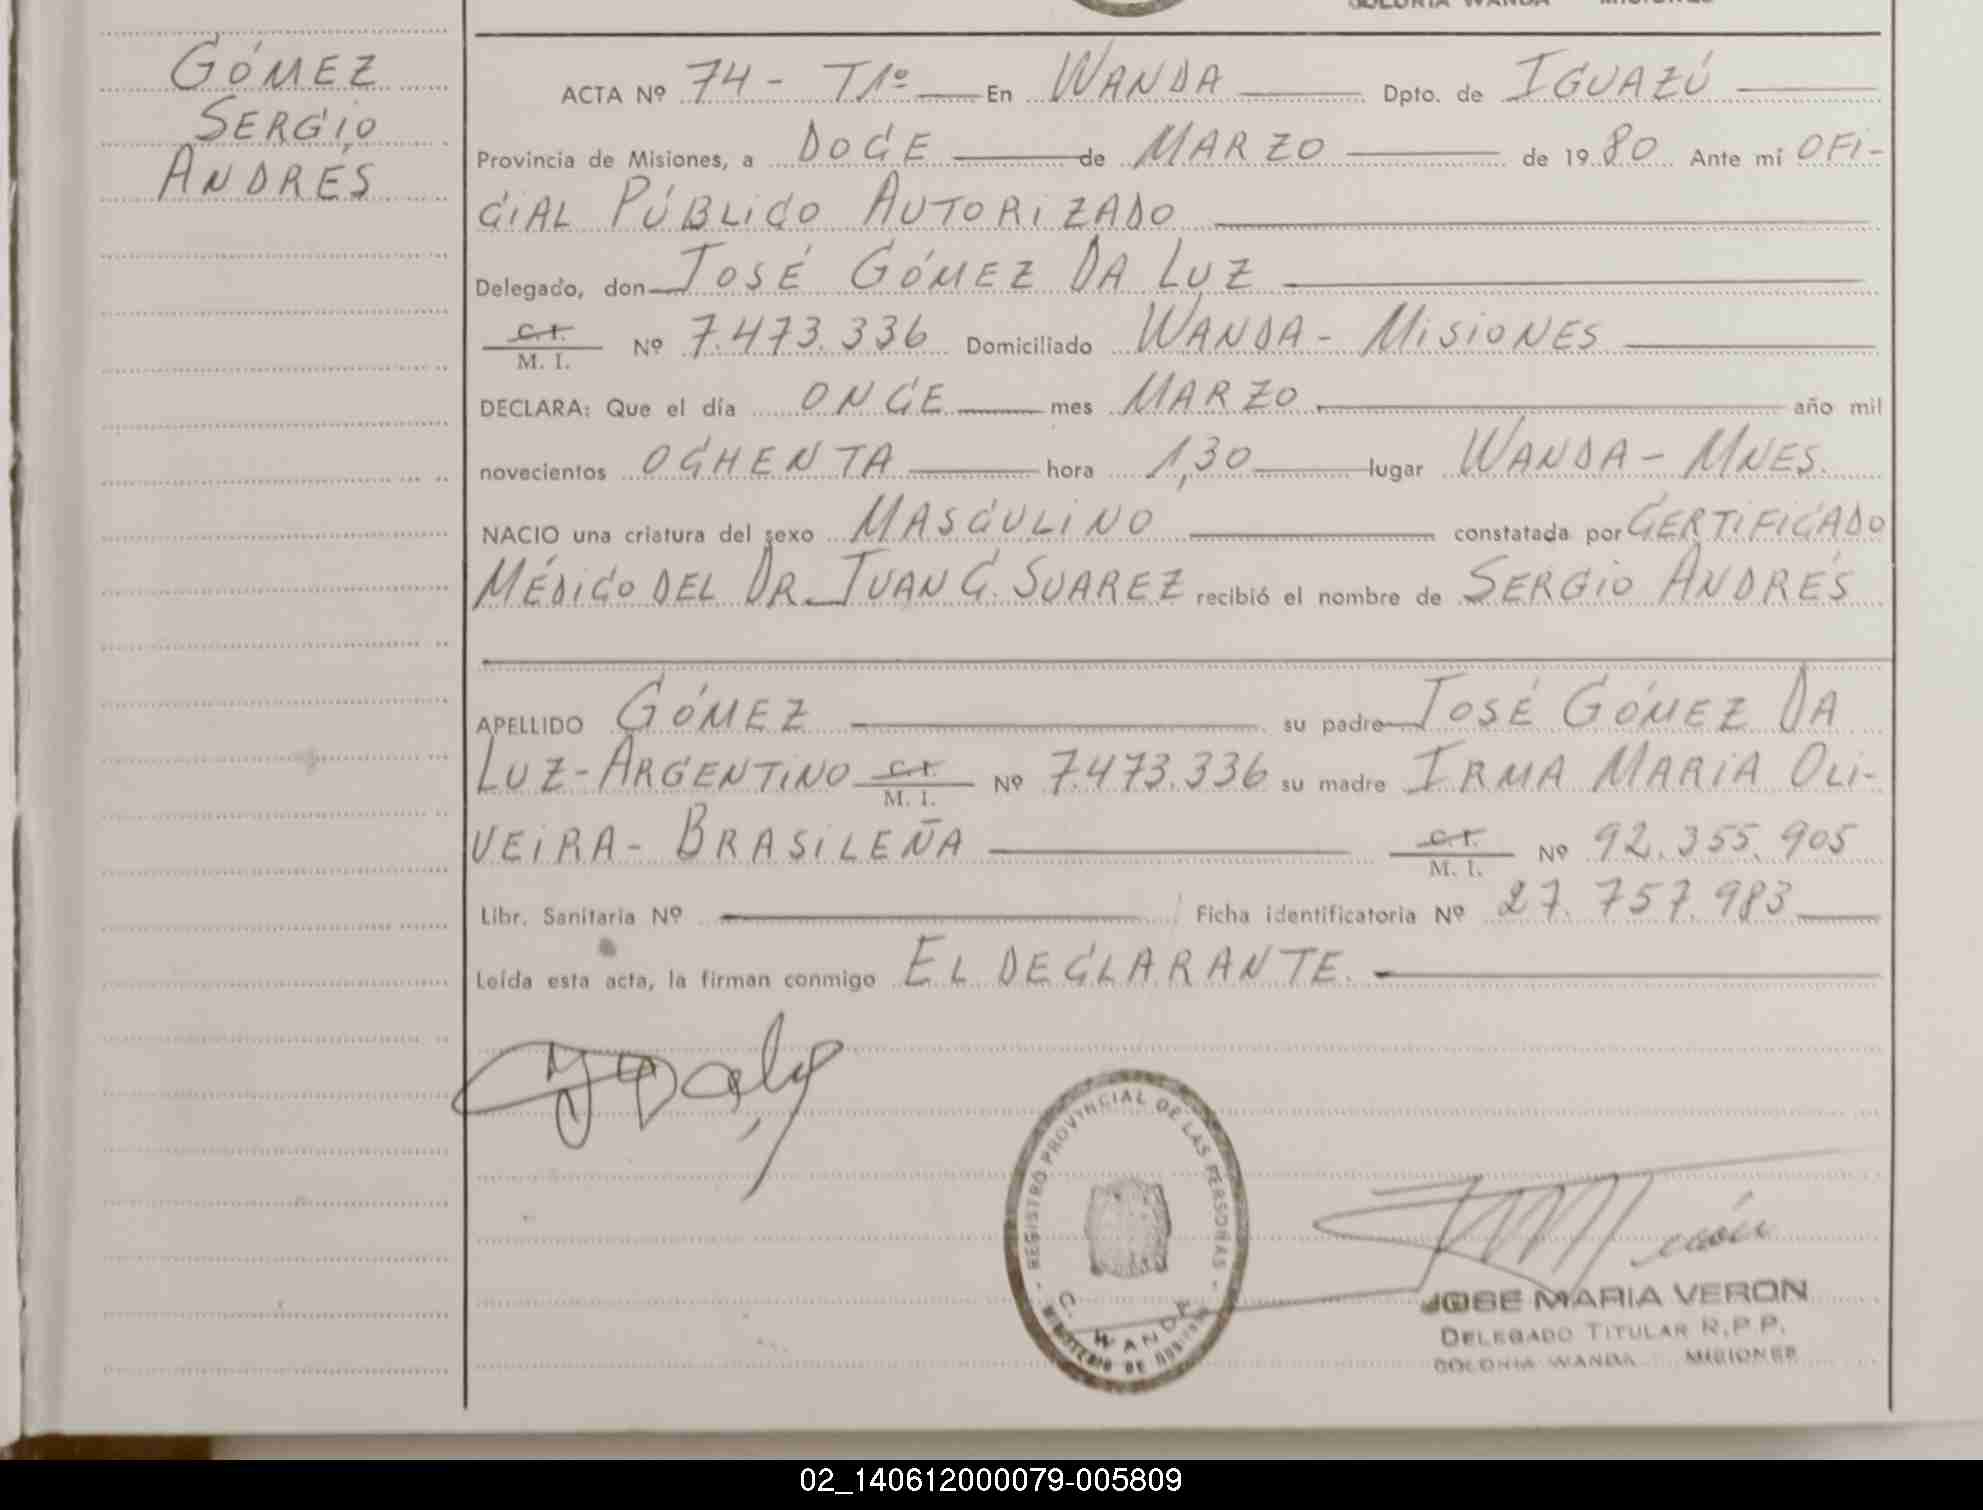 GÓMEZ
SERGIO
ANDRÉS
COLONIA WANDA MISIONES
ACTA Nº 74 - T1º En WANDA Dpto. de IGUAZÚ
Provincia de Misiones, a DOCE de MARZO de 1980 Ante mí OFI-
CIAL PÚBLICO AUTORIZADO
Delegado, don JOSÉ GÓMEZ DA LUZ
C. I.
M. I. Nº 7.473.336 Domiciliado WANDA - MISIONES
DECLARA: Que el día ONCE mes MARZO año mil
novecientos OCHENTA hora 1,30 lugar WANDA - MNES.
NACIO una criatura del sexo MASCULINO constatada por CERTIFICADO
MÉDICO DEL DR. JUAN C. SUAREZ recibió el nombre de SERGIO ANDRÉS
APELLIDO GÓMEZ su padre JOSÉ GÓMEZ DA
LUZ - ARGENTINO C. I. M. I. Nº 7.473.336 su madre IRMA MARIA OLI-
VEIRA - BRASILEÑA C. I. M. I. Nº 92.355.905
Libr. Sanitaria Nº Ficha identificatoria Nº 27.757.983
Leída esta acta, la firman conmigo EL DECLARANTE.
REGISTRO PROVINCIAL DE LAS PERSONAS
C. WANDA
MINISTERIO DE GOBIERNO
JOSE MARIA VERON
DELEGADO TITULAR R.P.P.
COLONIA WANDA MISIONES
02_140612000079-005809